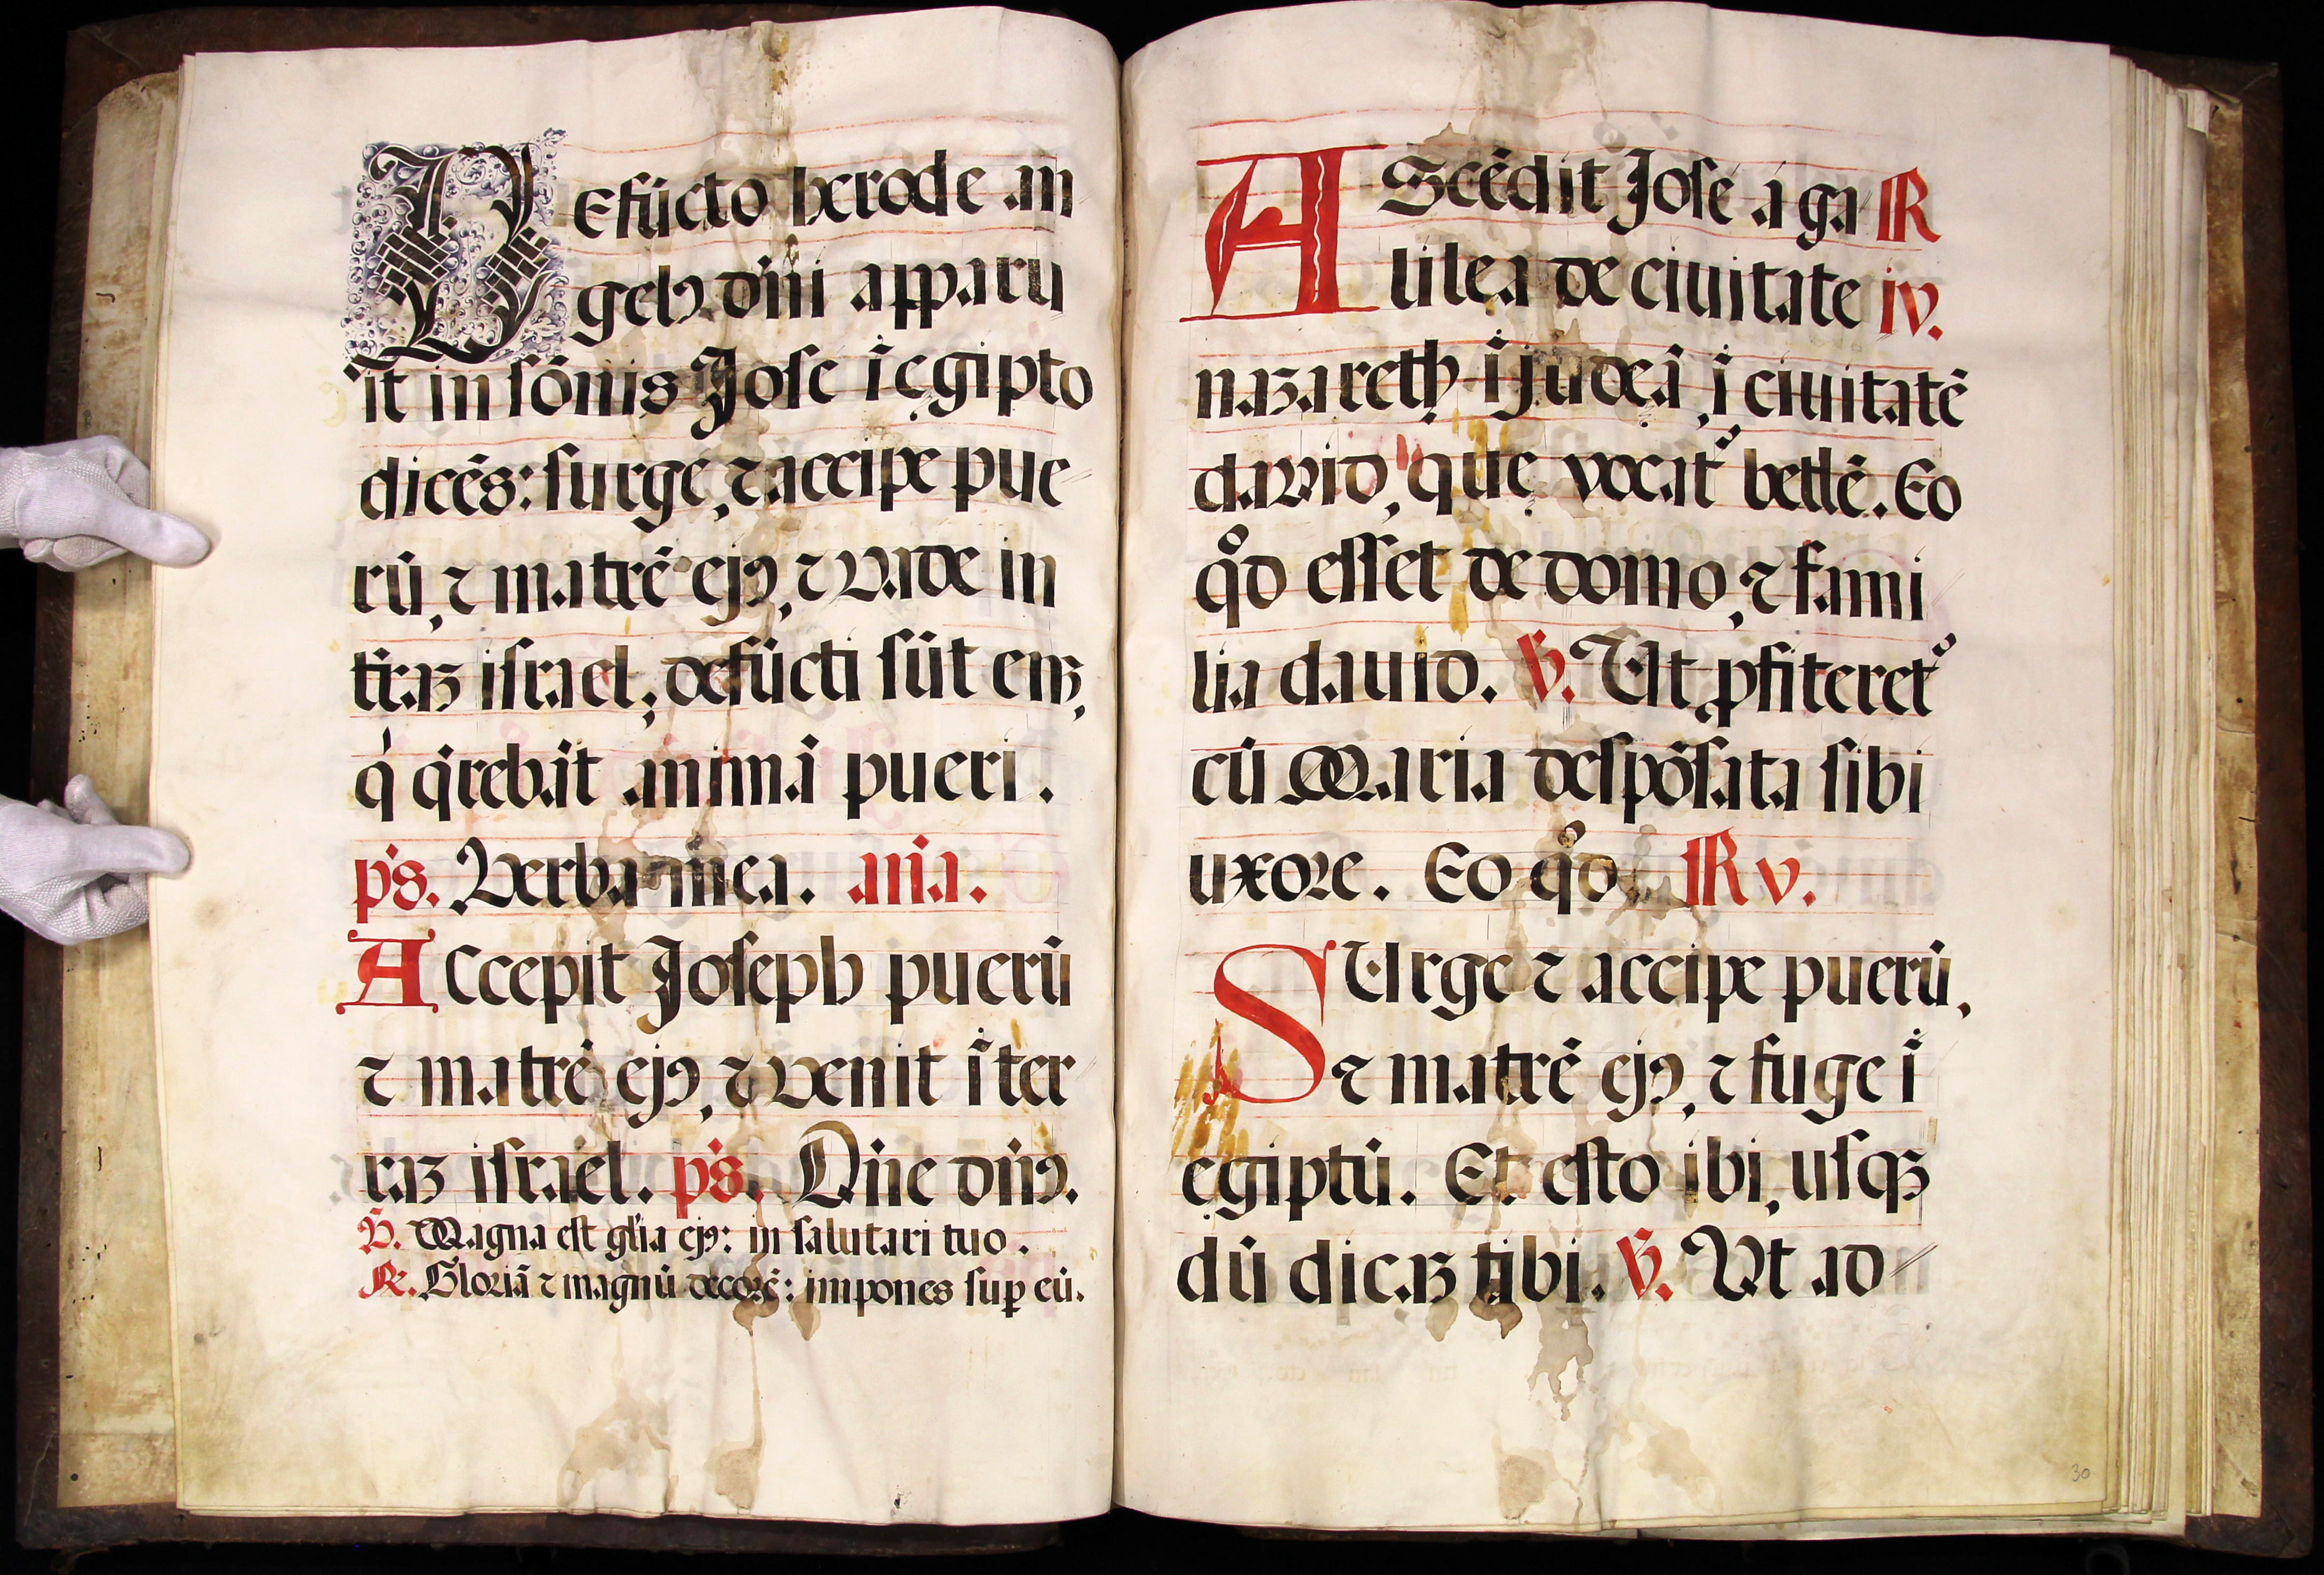 DEfūcto herode an
gelꝰ dn̄i apparu
it in sōnis Jose ī ęgipto
dicēs: surge, ⁊ accipe pue
rū, ⁊ matrē ejꝰ, ⁊ vade in
tr̄aʒ israel; defūcti sūt eniʒ,
q' q'rebāt animā pueri.
ps. Verba mea. an̄a.
ACcepit Joseph puerū
⁊ matrē ejꝰ, ⁊ venit īter
raʒ israel. ps. Dn̄e dn̄ꝰ.
℣. Magna est gl'ia ejꝰ: in salutari tuo.
℟. Gloriā ⁊ magnū decorē: impones suꝑ eū.
AScēdit Jose a ga ℟
lilea de civitate iv.
nazareth ī judeā, ī civitatē
david, quę vocatᷣ betlē. Eo
qᵒd esset de domo, ⁊ fami
lia david. ℣. Ut ꝓfiteretᷣ
cū Maria despōsata sibi
uxore. Eo qᵒd ℟ v.
SUrge ⁊ accipe puerū,
⁊ matrē ejꝰ, ⁊ fuge ī
ęgiptū. Et esto ibi, usqʒ
dū dicaʒ tibi. ℣. Ut ad
30